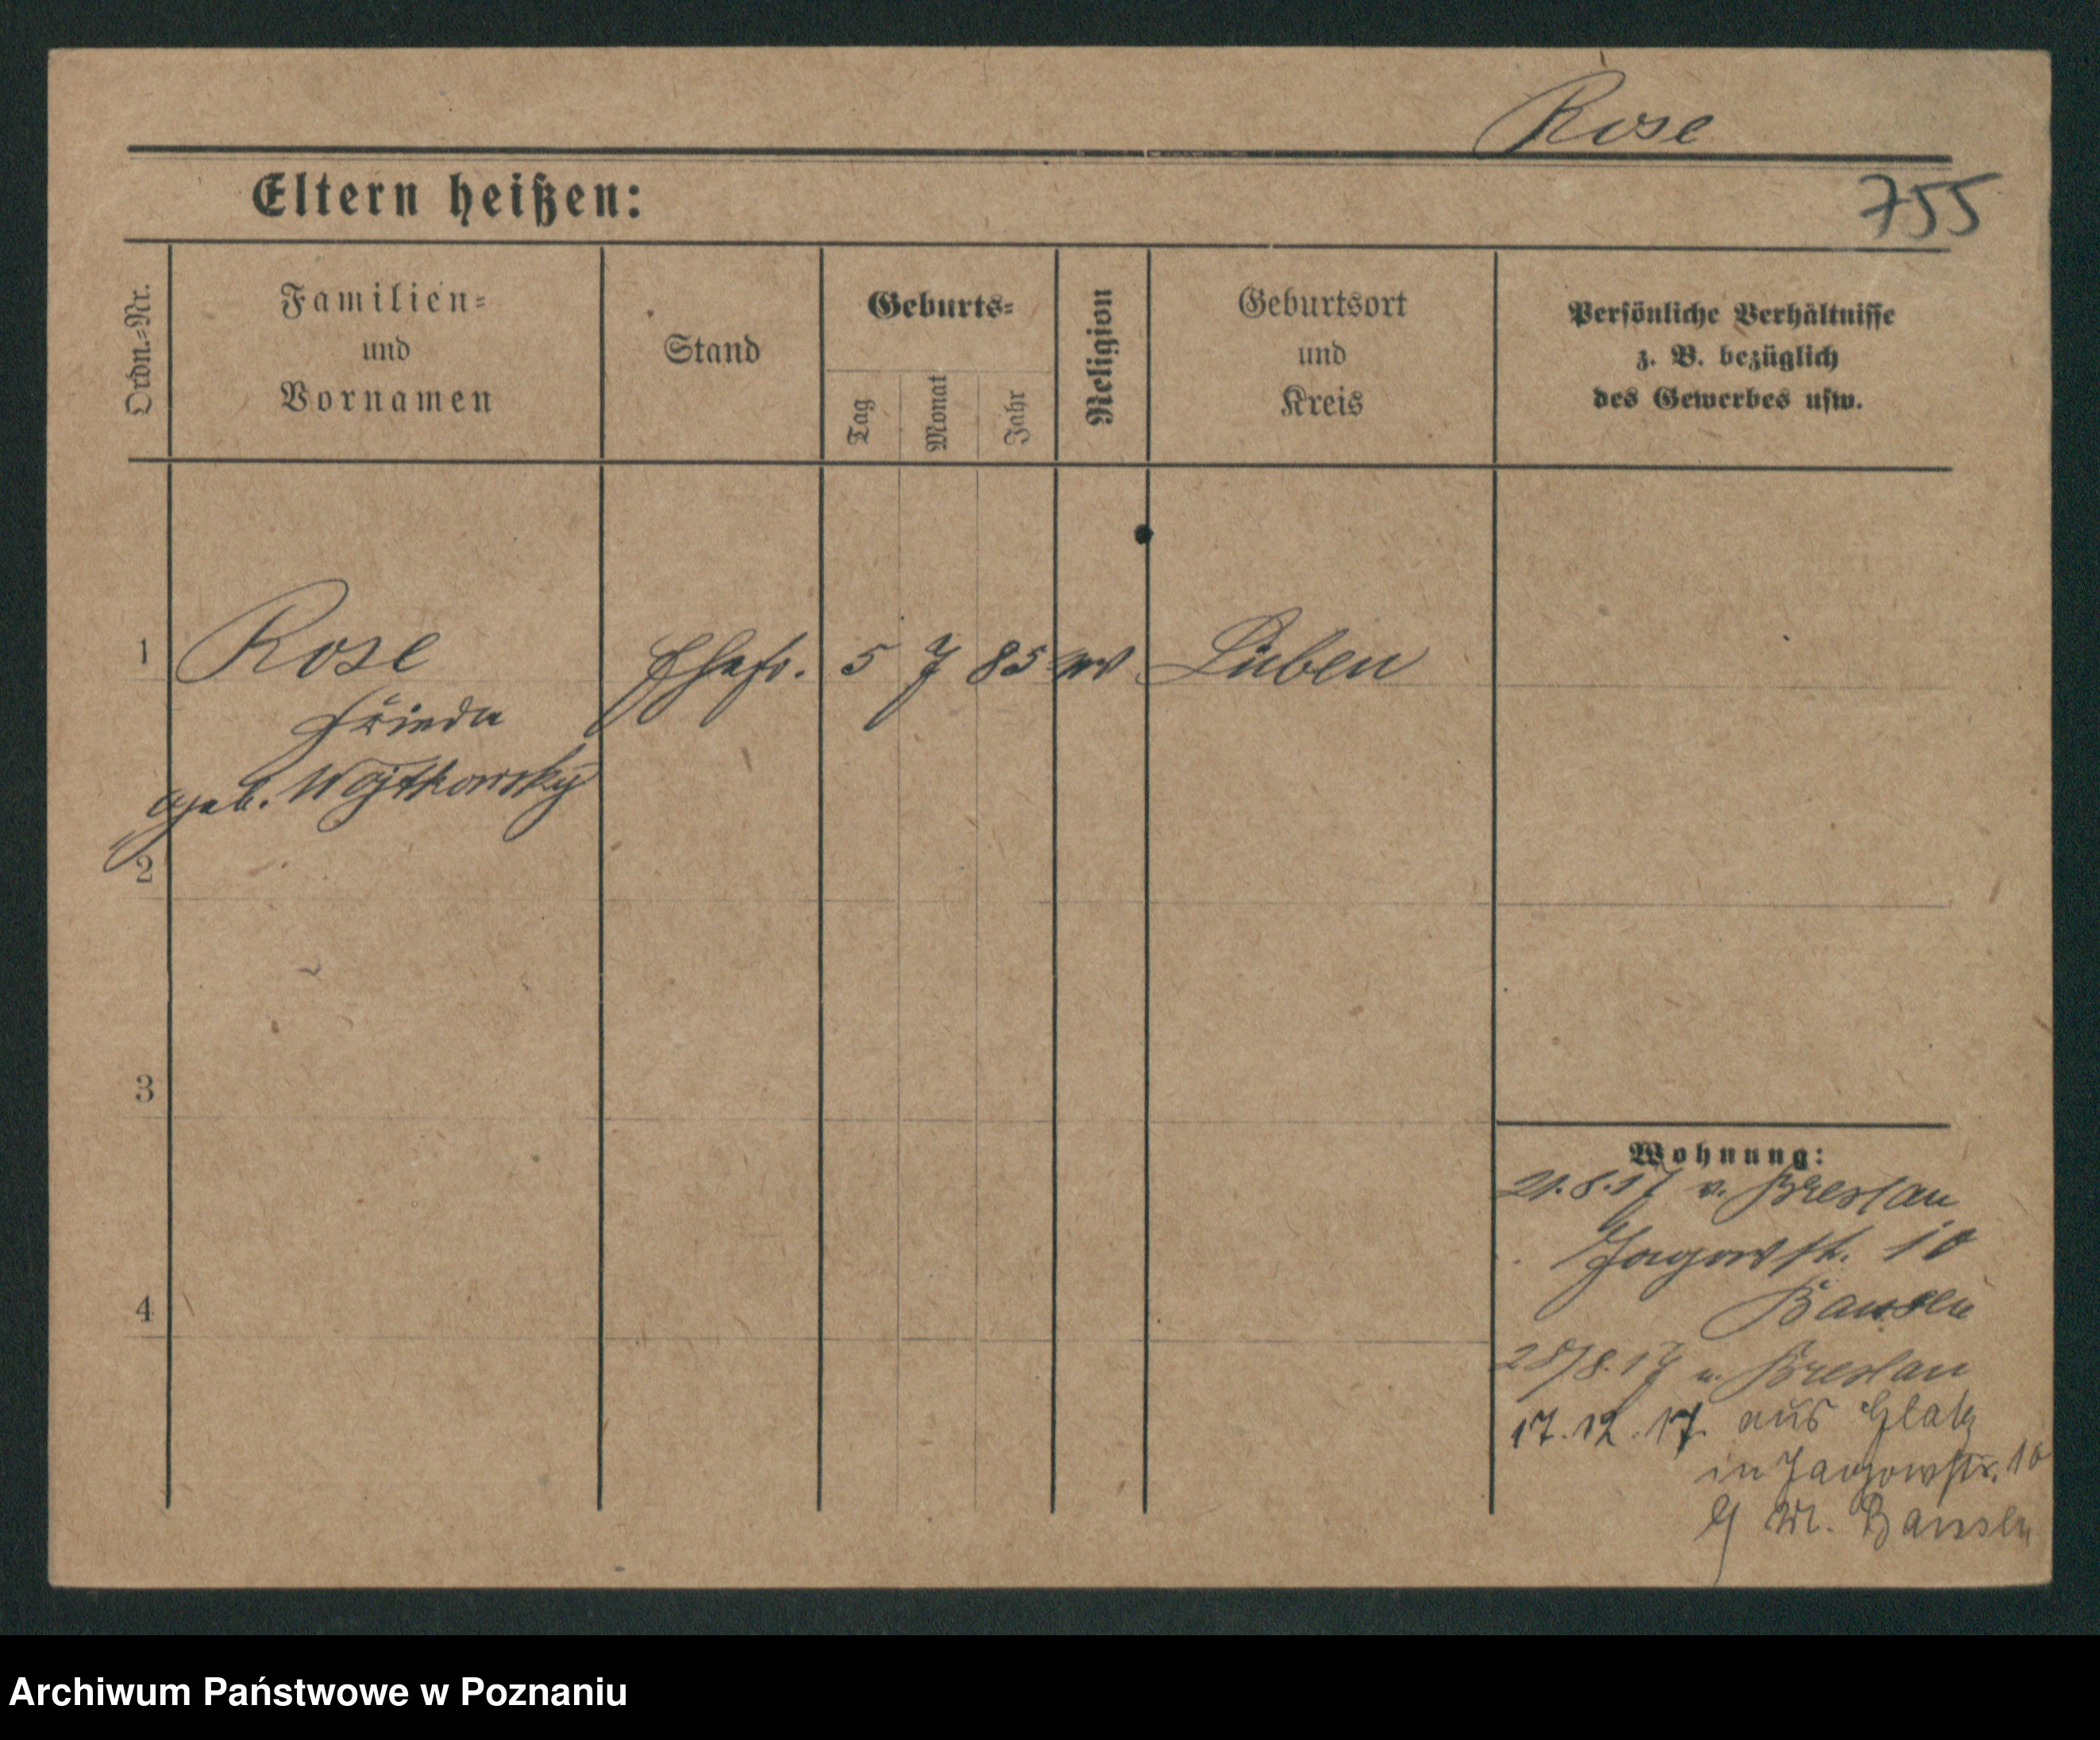 Rose
755
Eltern heißen:
Ordn.-Nr.
Familien-
und
Vornamen
Stand
Geburts-
Tag
Monat
Jahr
Religion
Geburtsort
und
Kreis
Persönliche Verhältnisse
z. B. bezüglich
des Gewerbes usw.
1 Rose Ehefr. 5 7 85 ev Lüben
Frieda
geb. Wojtkowsky
2
3
4
Wohnung:
21.8.17 v. Breslau
Jagowstr. 10
Bansen
28/8.17 n. Breslau
17.12.17. aus Glatz
in Jagowstr. 10
Bansen
Archiwum Państwowe w Poznaniu